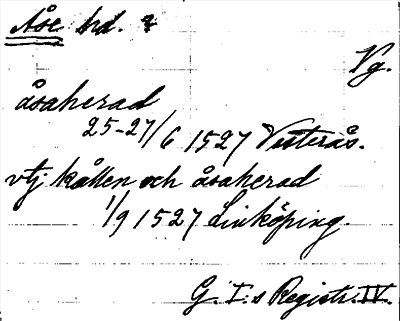 Åse hrd.
Vg.
åsaherad
25-27/6 1527 Vesterås.
vtj kållen och åsaherad
1/9 1527 Linköping.
G. I:s Registr. IV.